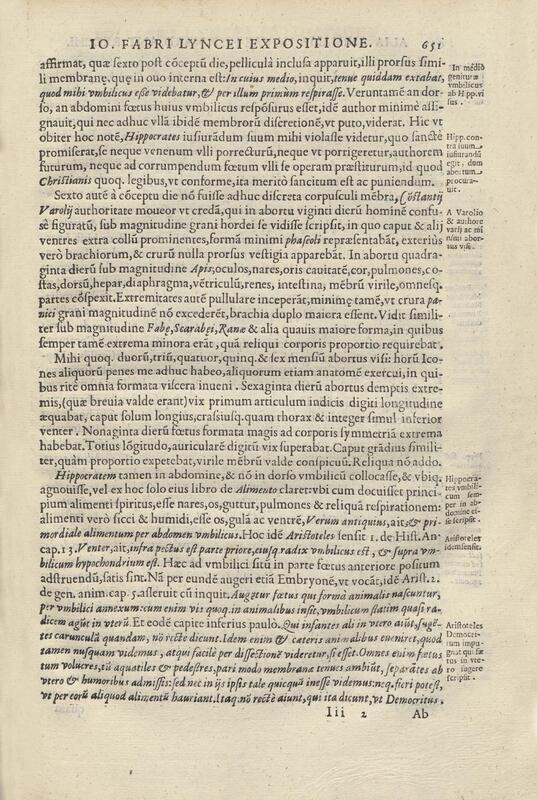 IO. FABRI LYNCEI EXPOSITIONE. 651
affirmat, quæ sexto post cõceptũ die, pelliculâ inclusa apparuit, illi prorsus simi-
li membranę, que in ouo interna est: In cuius medio, inquit, tenue quiddam extabat,
quod mihi vmbilicus esse videbatur, & per illum primùm respirasse. Veruntamẽ an dor-
so, an abdomini fœtus huius vmbilicus respõsurus esset, idẽ author minimè assi-
gnauit, qui nec adhuc vllã ibidẽ membrorũ discretionẽ, vt puto, viderat. Hic vt
obiter hoc notẽ, Hippocrates iusiurãdum suum mihi violasse videtur, quo sanctè
promiserat, se neque venenum vlli porrecturũ, neque vt porrigeretur, authorem
futurum, neque ad corrumpendum fœtum vlli se operam præstiturum, id quod
Christianis quoq. legibus, vt conforme, ita meritò sancitum est ac puniendum.
Sexto autẽ à cõceptu die nõ fuisse adhuc discreta corpusculi mẽbra, Cõstantij
Varolij authoritate moueor vt credã, qui in abortu viginti dierũ hominẽ confu-
sè figuratũ, sub magnitudine grani hordei se vidisse scripsit, in quo caput & alij
ventres extra collũ prominentes, formã minimi phaseoli repræsentabãt, exteriùs
verò brachiorum, & crurũ nulla prorsus vestigia apparebãt. In abortu quadra-
ginta dierũ sub magnitudine Apis; oculos, nares, oris cauitatẽ, cor, pulmones, co-
stas, dorsũ, hepar, diaphragma, vẽtriculũ, renes, intestina, mẽbrũ virile, omnesq.
partes cõspexit. Extremitates autẽ pullulare inceperãt, minimę tamẽ, vt crura pa-
nici grani magnitudinẽ nõ excederẽt, brachia duplo maiora essent. Vidit simili-
ter sub magnitudine Fabę, Scarabęi, Ranæ & alia quauis maiore forma, in quibus
semper tamẽ extrema minora erãt, quã reliqui corporis proportio requirebat.
Mihi quoq. duorũ, triũ, quatuor, quinq. & sex mensiũ abortus visi: horũ Ico-
nes aliquorũ penes me adhuc habeo, aliquorum etiam anatomẽ exercui, in qui-
bus ritè omnia formata viscera inueni. Sexaginta dierũ abortus demptis extre-
mis, (quæ breuia valde erant) vix primum articulum indicis digiti longitudine
æquabat, caput solum longius, crassiusq. quam thorax & integer simul inferior
venter. Nonaginta dierũ fœtus formata magis ad corporis symmetriã extrema
habebat. Totius lõgitudo, auricularẽ digitũ vix superabat. Caput grãdius simili-
ter, quàm proportio expetebat, virile mẽbrũ valde conspicuũ. Reliqua nõ addo.
Hippocratem tamen in abdomine, & nõ in dorso vmbilicũ collocasse, & vbiq.
agnouisse, vel ex hoc solo eius libro de Alimento claret: vbi cum docuisset princi-
pium alimenti spiritus, esse nares, os, guttur, pulmones & reliquã respirationem:
alimenti verò sicci & humidi, esse os, gulã ac ventrẽ, Verum antiquius, ait, & pri-
mordiale alimentum per abdomen vmbilicus. Hoc idẽ Aristoteles sensit 1. de Hist. An
cap. 13. Venter, ait, infra pectus est parte priore, eiusq. radix vmbilicus est, & supra vm-
bilicum hypochondrium est. Hæc ad vmbilici sitũ in parte fœtus anteriore positum
adstruendũ, satis sint. Nã per eundẽ augeri etiã Embryonẽ, vt vocãt, idẽ Arist. 2.
de gen. anim. cap. 5. asseruit cũ inquit. Augetur fœtus qui formã animalis nascuntur,
per vmbilici annexum: cum enim vis quoq. in animalibus insit, vmbilicum statim quasi ra-
dicem agũt in vterũ. Et eodẽ capite inferius paulo. Qui infantes ali in vtero aiũt, sugẽ-
tes carunculã quandam, nõ rectè dicunt. Idem enim & cæteris animalibus eueniret, quod
tamen nusquam videmus, atqui facilè per dissectionẽ videretur, si esset. Omnes enim fœtus
tum volucres, tũ aquatiles & pedestres, pari modo membrana tenues ambiũt, separãtes ab
vtero & humoribus admissis: sed nec in ijs ipsis tale quicquã inesse videmus: neq. fieri potest,
vt per eorũ aliquod alimentũ hauriant. Itaq. nõ rectè aiunt, qui ita dicunt, vt Democritus.
Iii 2 Ab
In mediò
genituræ
vmbilicus
ab Hipp. vi
sus.
Hipp. con
tra suum
iusiurãdũ
egit, dum
abortum
procura-
uit.
A Varolio
& authore
varij ac mi
nimi abor-
tus visi.
Hippocra-
tes vmbili-
cum sem-
per in ab-
domine es-
se scripsit.
Aristoteles
idem sensit.
Aristoteles
Democri-
tum impu-
gnat qui fœ
tus in vte-
ro sugere
scripsit.